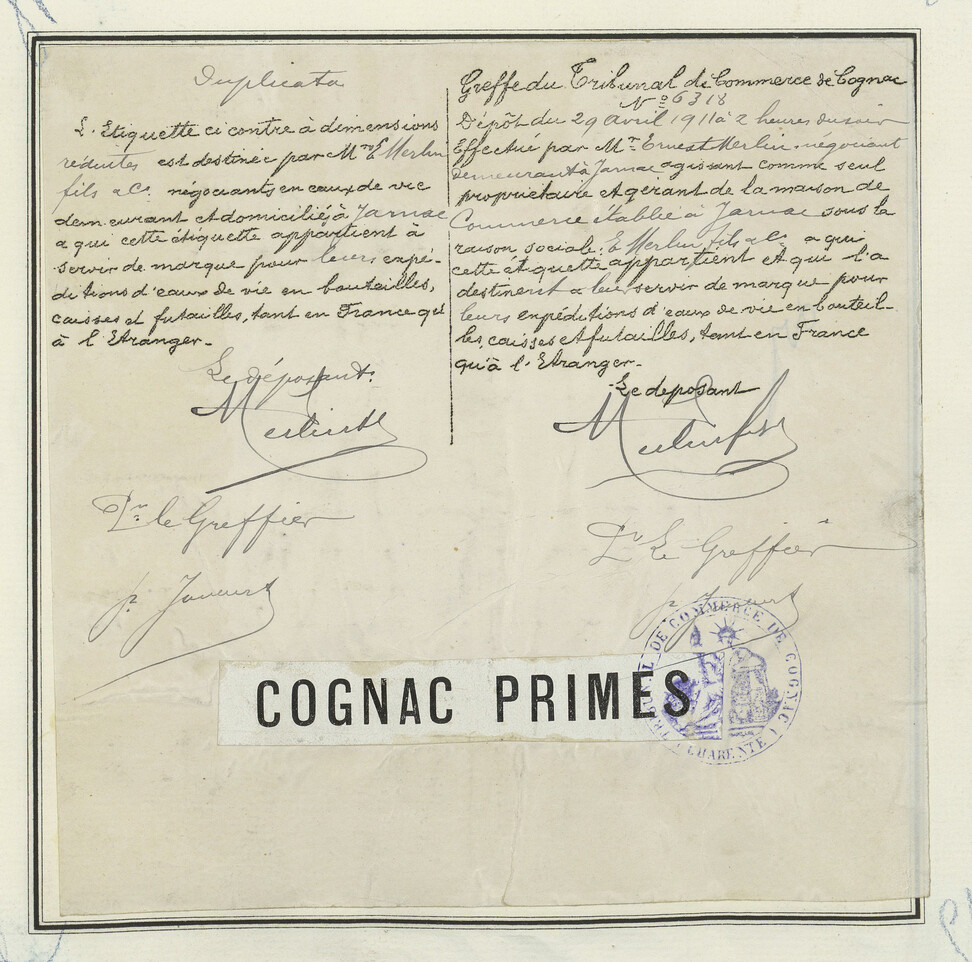 Duplicata
L'Etiquette ci contre à dimensions
réduites est destinée par Mrs E Merlin
fils & Cie négociants en eaux de vie
demeurant et domicilié à Jarnac
a qui cette étiquette appartient à
servir de marque pour leurs expé-
ditions d'eaux de vie en bouteilles,
caisses et futailles, tant en France qu'
à l'Etranger.-
Le déposant.
Pr le Greffier
Greffe du Tribunal de Commerce de Cognac
No 6318
Dépôt du 29 avril 1911 à 2 heures du soir
Effectué par Mr Ernest Merlin négociant
demeurant à Jarnac agissant comme seul
propriétaire et gérant de la maison de
Commerce établie à Jarnac sous la
raison sociale: E Merlin fils & Cie a qui
cette étiquette appartient et qui l'a
destinent a leur servir de marque pour
leurs expéditions d'eaux de vie en bouteil-
les, caisses et futailles, tant en France
qu'à l'Etranger.-
Le deposant
Merlin fils
Pr Le Greffier
COGNAC PRIMES
TRIBUNAL DE COMMERCE DE COGNAC
CHARENTE